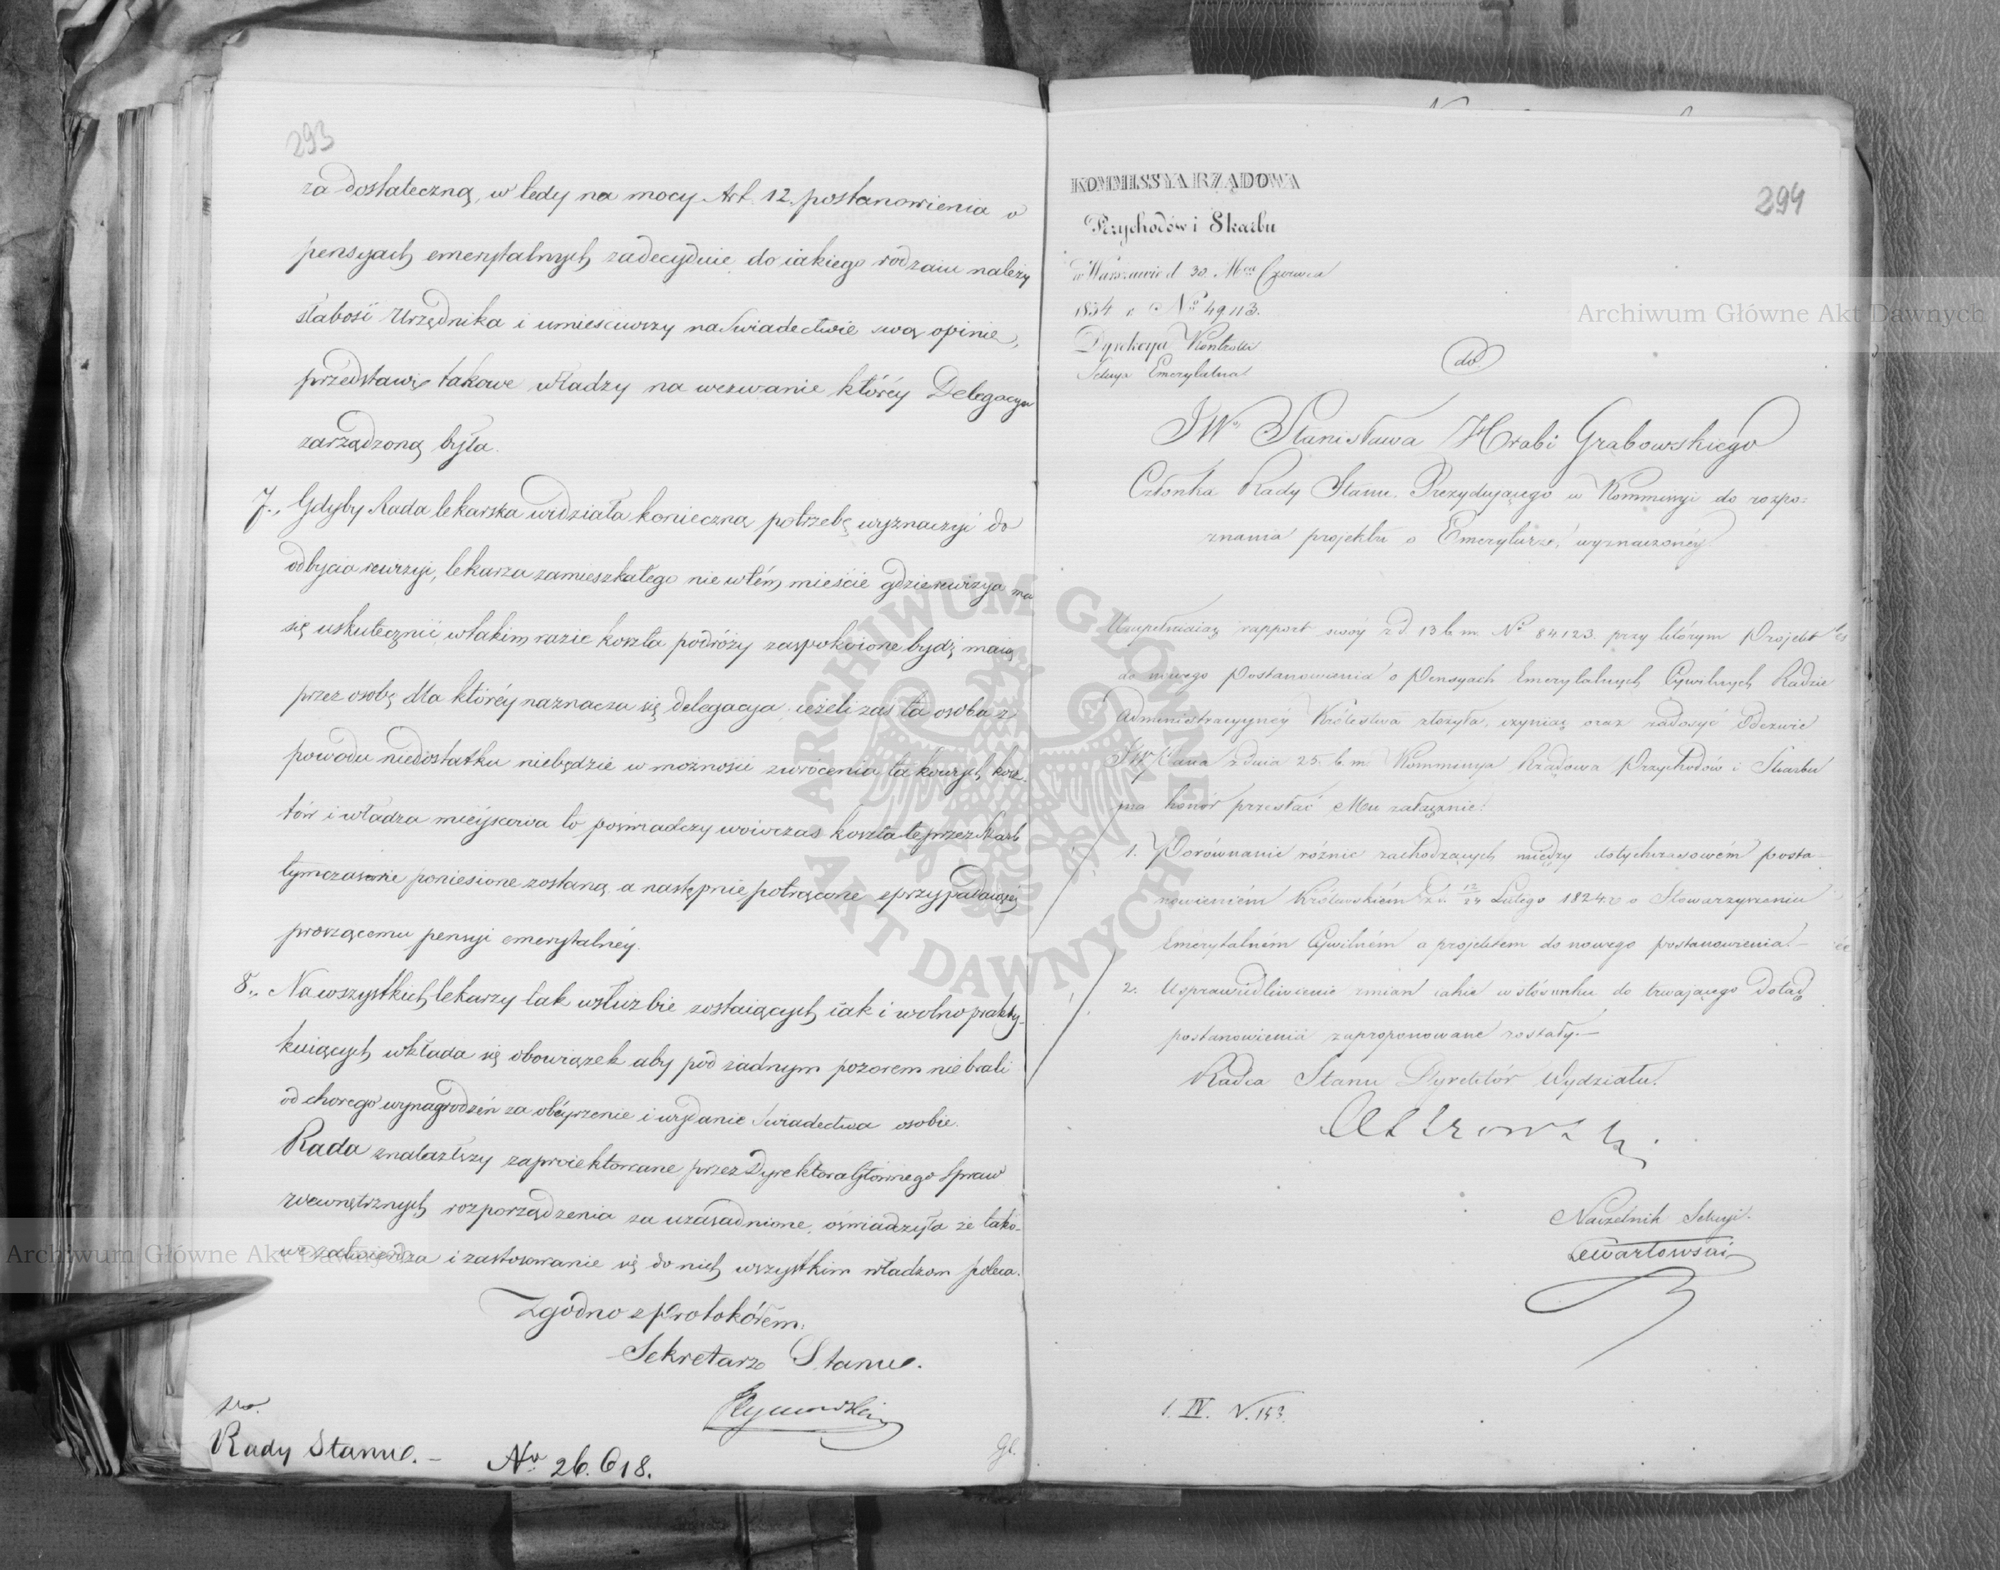 293
za dostateczną, w tedy na mocy Art. 12. postanowienia o
pensyach emerytalnych zadecyduie do iakiego rodzaiu należy
słabość Urzędnika i umieściwszy na Świadectwie swą opinię,
przedstawi takowe władzy na wezwanie któréy Delegacya
zarządzoną była.
7., Gdyby Rada lekarska widziała konieczną potrzebę wyznaczyć do
odbycia rewizyi, lekarza zamieszkałego nie w tém mieście gdzie rewizya ma
się uskutecznić w takim razie koszta podróży zaspokoione bydź maią
przez osobę dla któréy naznacza się delegacya, ieżeli zaś ta osoba z
powodu niedostatku niebędzie w możności zwrócenia takowych kosz-
tów i władza mieyscowa to poświadczy wówczas koszta te przez Skarb
tymczasowie poniesione zostaną, a następnie potrącone z przypadaiącéj
proszącemu pensyi emerytalnéy.
8., Na wszystkich lekarzy tak w służbie zostaiących iak i wolno prakty-
kuiących wkłada się obowiązek aby pod żadnym pozorem nie brali
od chorego wynagrodzeń za obéyrzenie i wydanie Świadectwa osobie.
Rada znalazłszy zaproiektowane przez Dyrektora Głównego Spraw
Wewnętrznych rozporządzenia za uzasadnione, oświadczyła że tako-
we zatwierdza i zastosowanie się do nich wszystkim władzom poleca.
Zgodno z Protokółem.
Sekretarz Stanu.
Rady Stanu. –
No 26.618.
294
KOMMISSYA RZĄDOWA
Przychodów i Skarbu
w Warszawie d. 30. Mca Czerwca
1834 r. No 49113.
Dyrekcya Kontrolli
Sekcya Emerytalna
do
JWo Stanisława Hrabi Grabowskiego
Członka Rady Stanu, Prezydującego w Kommissyi do rozpo:
znania projektu o Emeryturze, wyznaczonéy
Uzupełniaiąc rapport swóy z d. 13 b. m. No 84123. przy którym Projekt
do nowego Postanowienia o Pensyach Emerytalnych Cywilnych Radzie
Administracyjnéy Królestwa złożyła, czyniąc oraz zadosyć Odezwie
JW Pana z dnia 25. b. m. Kommissya Rządowa Przychodów i Skarbu
ma honor przesłać Mu załącznie:
1. Porównanie różnic zachodzących między dotychczasowém posta-
nowieniém Królewskiém z d. 12/24 Lutego 1824 r. o Stowarzyszeniu
Emerytalném Cywilném a projektem do nowego postanowienia –
2. Usprawiedliwienie zmian iakie w stósunku do trwającego dotąd
postanowienia zaproponowane zostały. –
Radca Stanu Dyrektór Wydziału.
Naczelnik Sekcyi.
Lewartowski
1. IV. V. 153.
Archiwum Główne Akt Dawnych
Archiwum Główne Akt Dawnych
ARCHIWUM GŁÓWNE AKT DAWNYCH